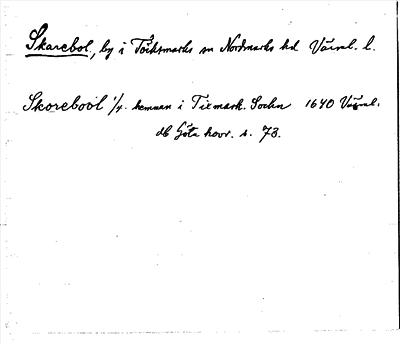 Skarebol, by i Töcksmarks sn Nordmarks hd Värml. l.
Skoreboöl 1/4. hemman i Tixmark. Sochn 1640 Värml.
db Göta hovr. s. 73.